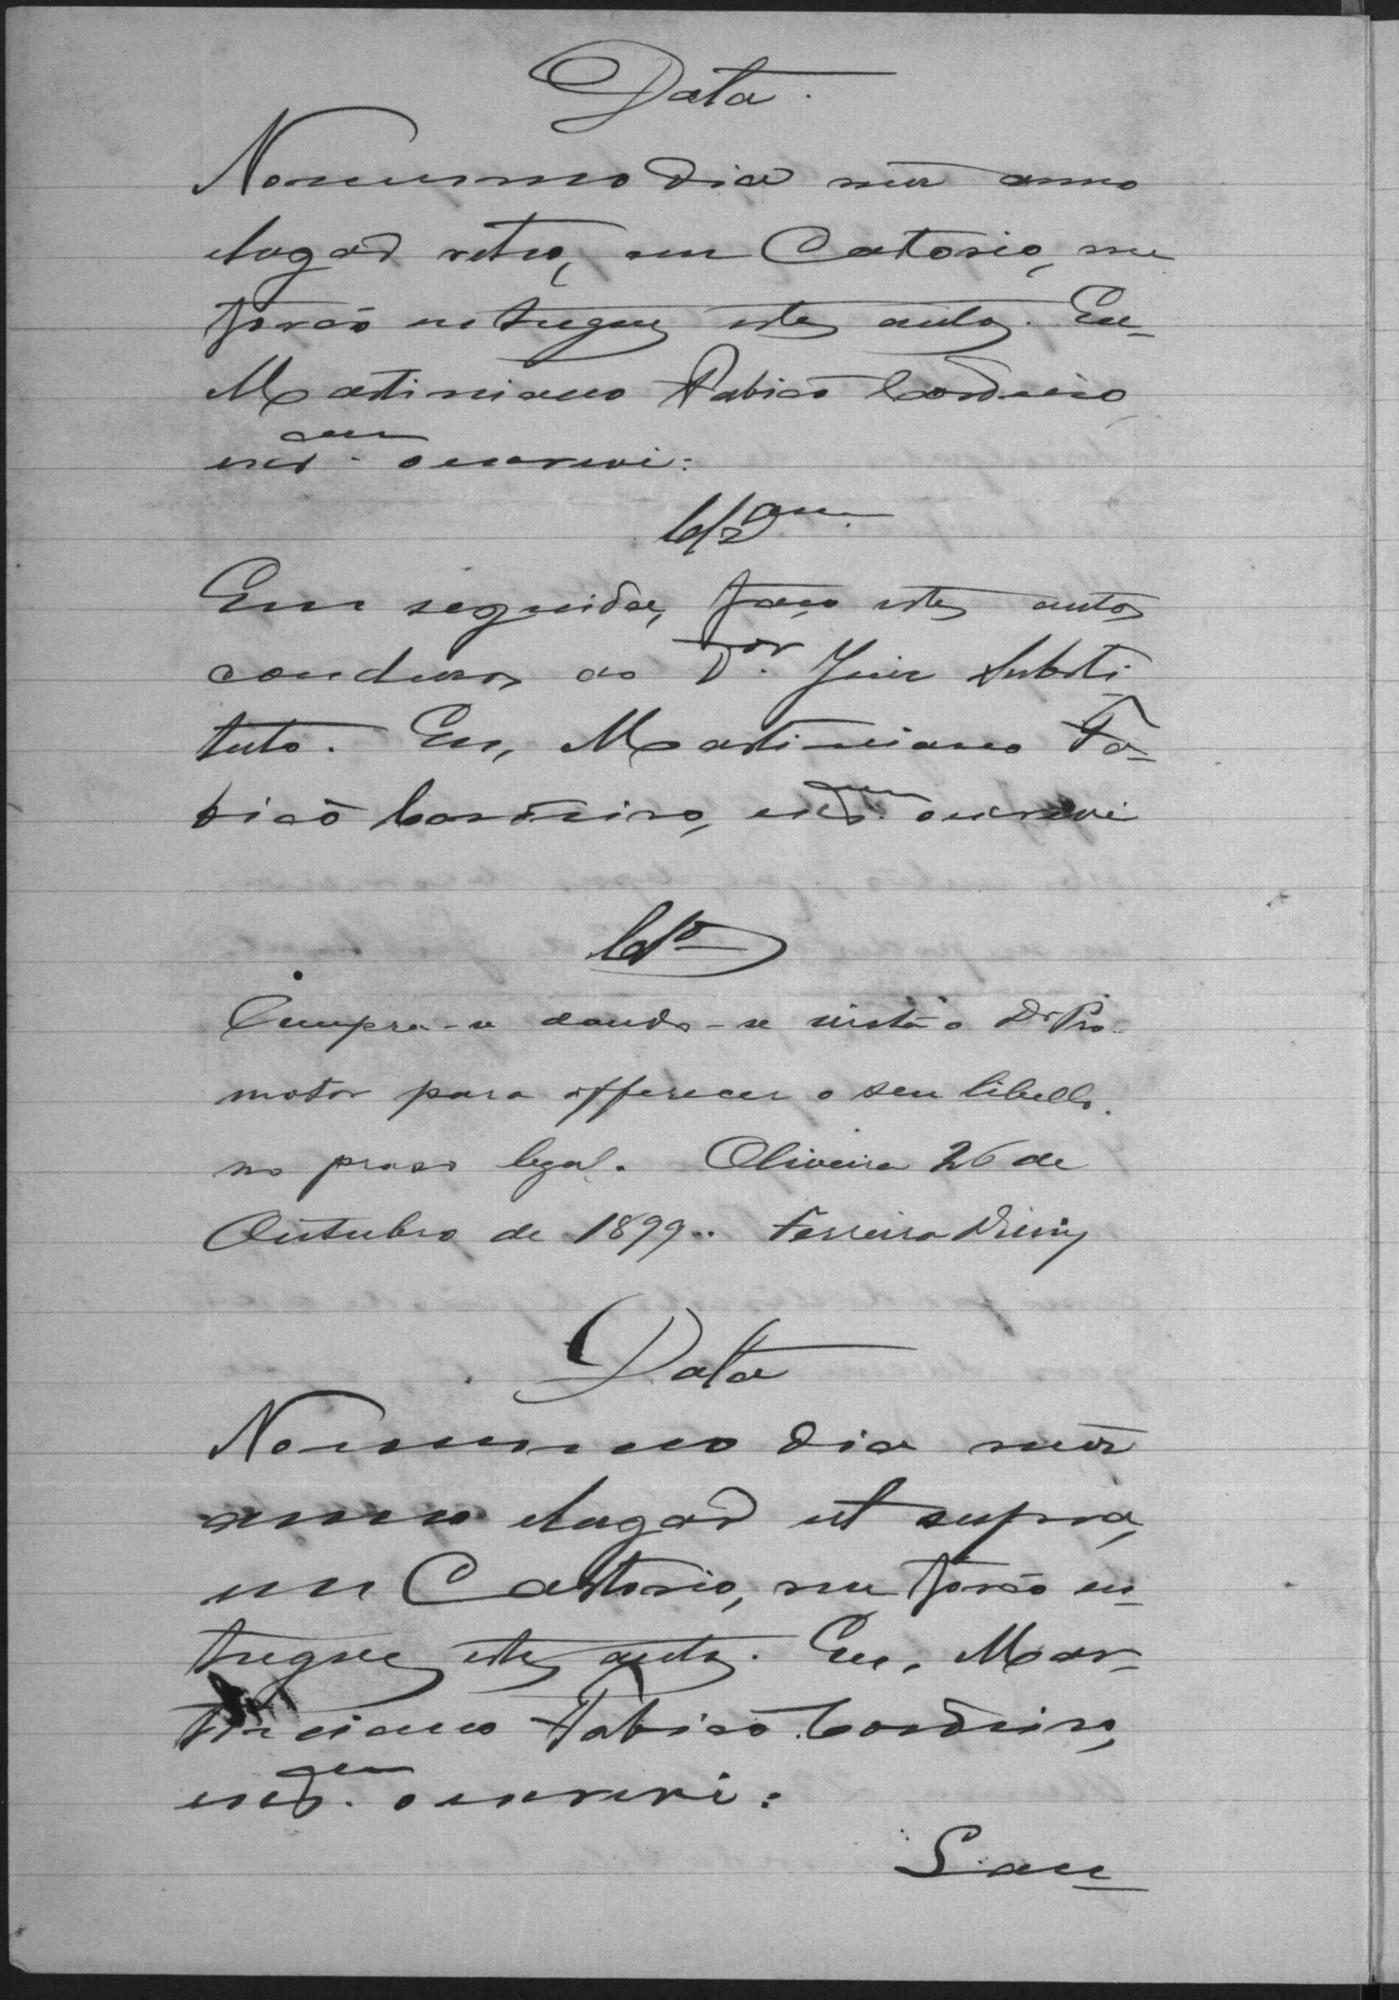 Data.
No mesmo dia mez anno
e lugar retro, em Cartorio, me
forão entregues estes autos. Eu
Martiniano Fabião Cordeiro,
escr.am o escrevi:
Clsam.
Em seguida, faço estes autos
conclusos ao Dor. Juiz Substi
tuto. Eu, Martiniano Fa-
bião Cordeiro, escr.am o escrevi
Clso
Cumpra-se dando-se vista o Dr Pro-
motor para offerecer o seu libello
no praso legal. Oliveira 26 de
Outubro de 1899. Ferreira
Data
No mesmo dia mez
anno e lugar ut supra,
em Cartorio, me forão en-
tregues estes autos. Eu, Mar-
tiniano Fabião Cordeiro,
escr.am o escrevi: